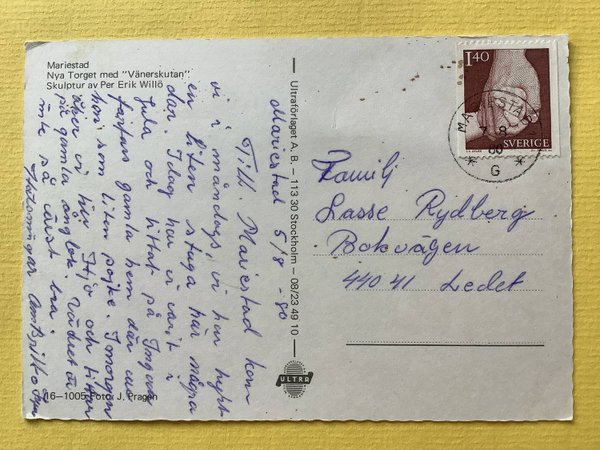 Mariestad
Nya Torget med "Vänerskutan"
Skulptur av Per Erik Willö
Mariestad 5/8 -80
Till Mariestad kom
vi i måndags, vi har hyrt
en liten stuga här några
dar. Idag har vi varit i
Lula och tittat på
farfars gamla hem där
han som liten pojke. Imorgon
åker vi till Hjo och tittar
på gamla ånglok. Vädret är
inte så värst bra.
Hälsningar
16-1005 Foto: J. Pragen
Ultraförlaget A. B. – 113 30 Stockholm – 08/23 49 10
ULTRA
1.40
SVERIGE
MARIESTAD
8
80
G
Familj
Lasse Rydberg
Bokvägen
440 41 Ledet